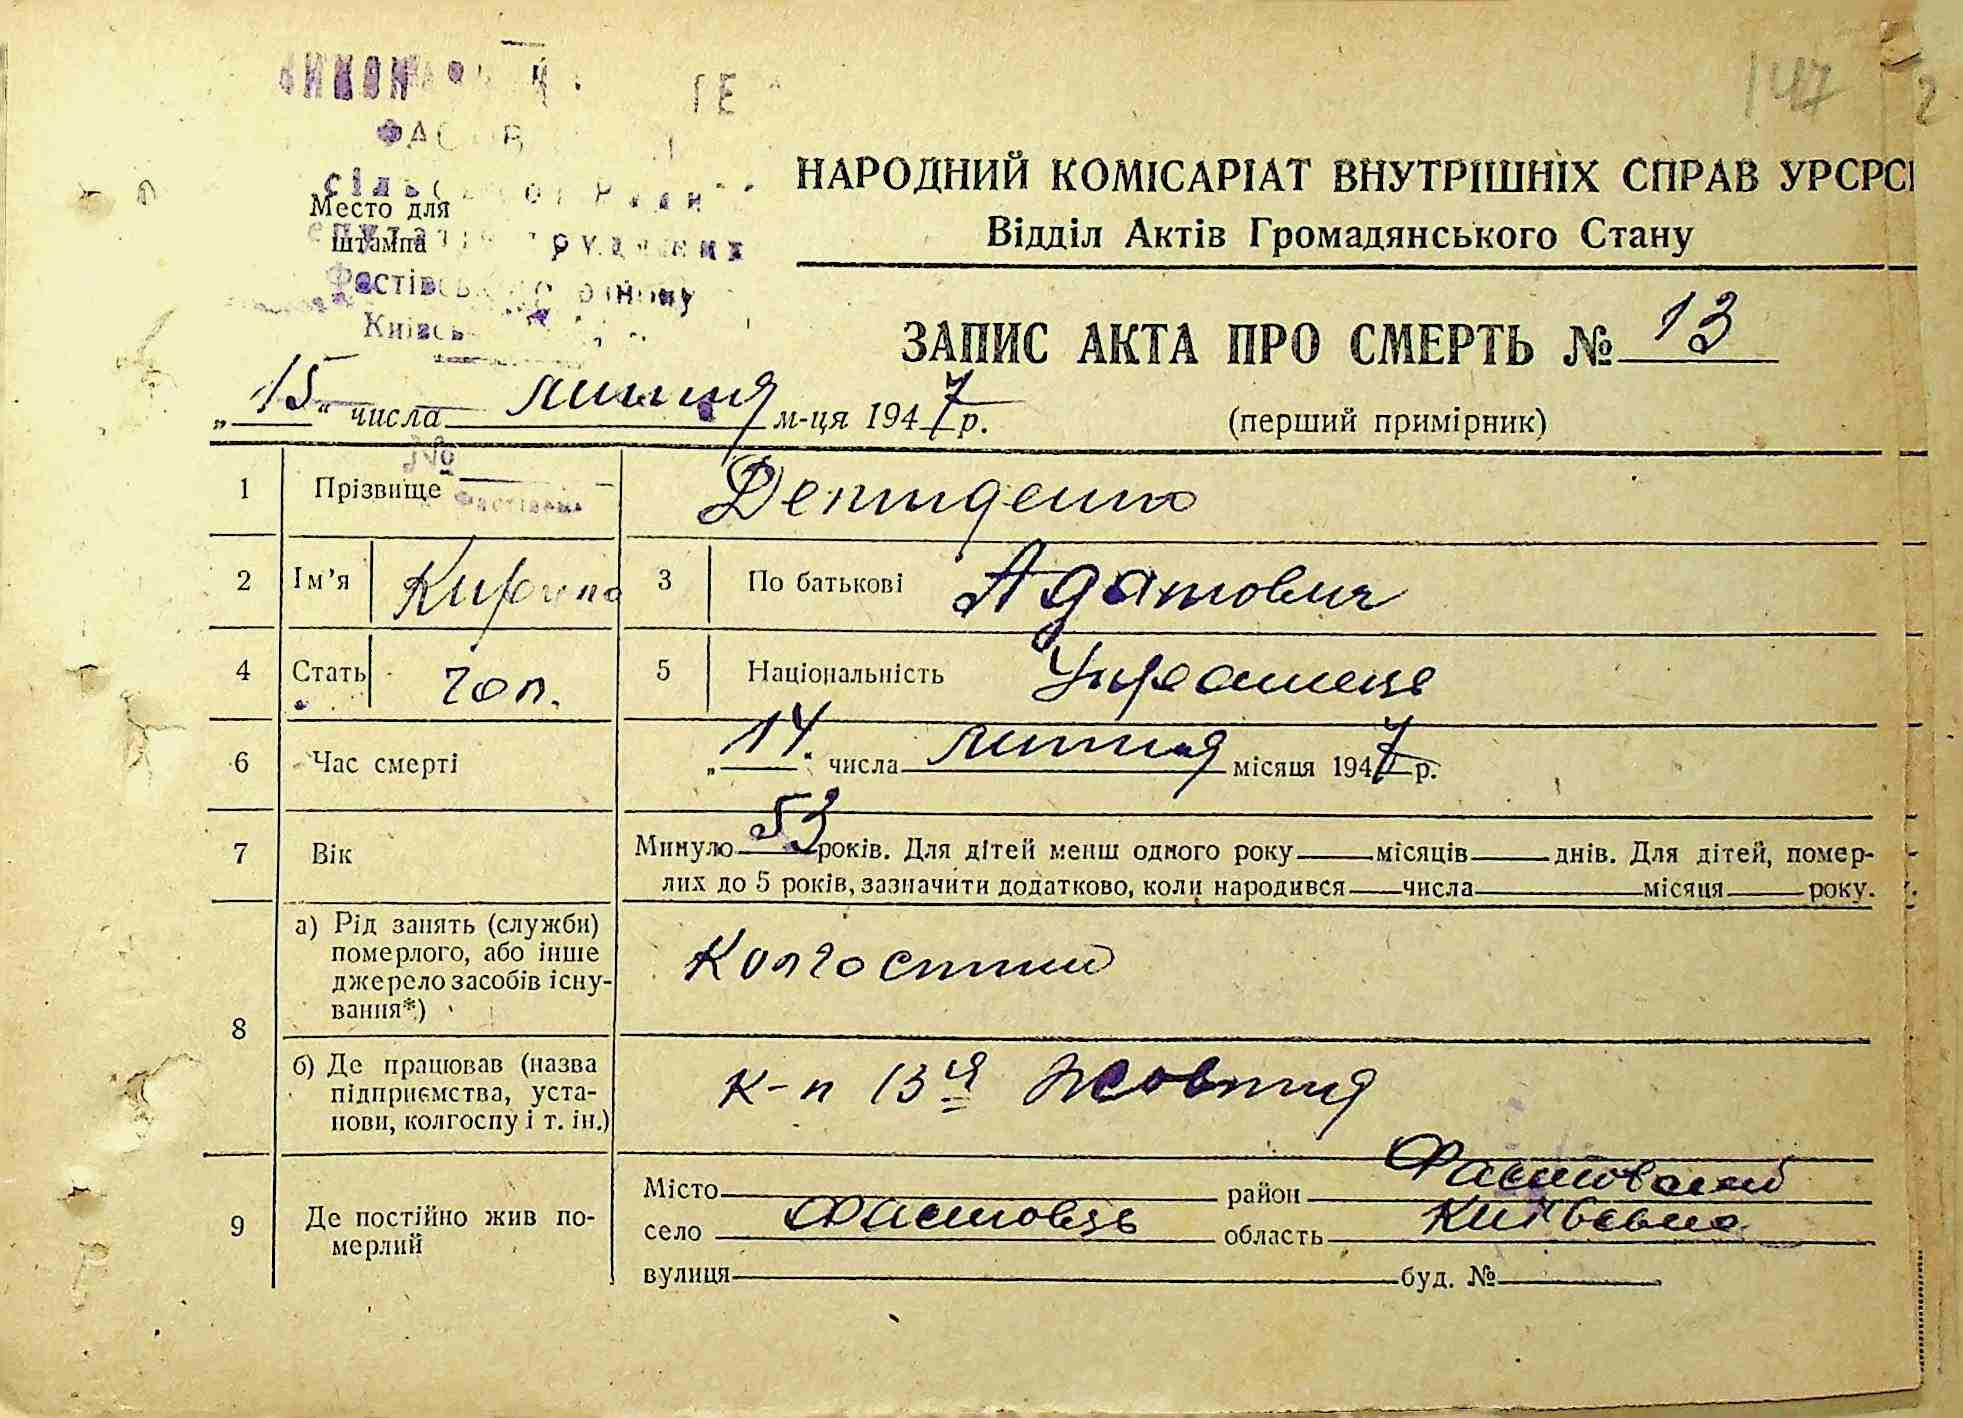 147
НАРОДНИЙ КОМІСАРІАТ ВНУТРІШНІХ СПРАВ УРСРСІ
Відділ Актів Громадянського Стану
Место для
штампа
Фастівського району
Київсь
ЗАПИС АКТА ПРО СМЕРТЬ № 13
„15“ числа липня м-ця 1947 р.
(перший примірник)
1 Прізвище Демиденко
2 Ім’я Кирило 3 По батькові Адамович
4 Стать чол. 5 Національність Українець
6 Час смерті „14“ числа липня місяця 1947 р.
7 Вік Минуло 53 років. Для дітей менш одного року місяців днів. Для дітей, помер-
лих до 5 років, зазначити додатково, коли народився числа місяця року.
8 а) Рід занять (служби)
померлого, або інше
джерело засобів існу-
вання*)
Колгоспник
б) Де працював (назва
підприємства, уста-
нови, колгоспу і т. ін.)
к-п 13я Жовтня
9 Де постійно жив по-
мерлий
Місто район Фастовский
село Фастовець область Київська
вулиця буд. №